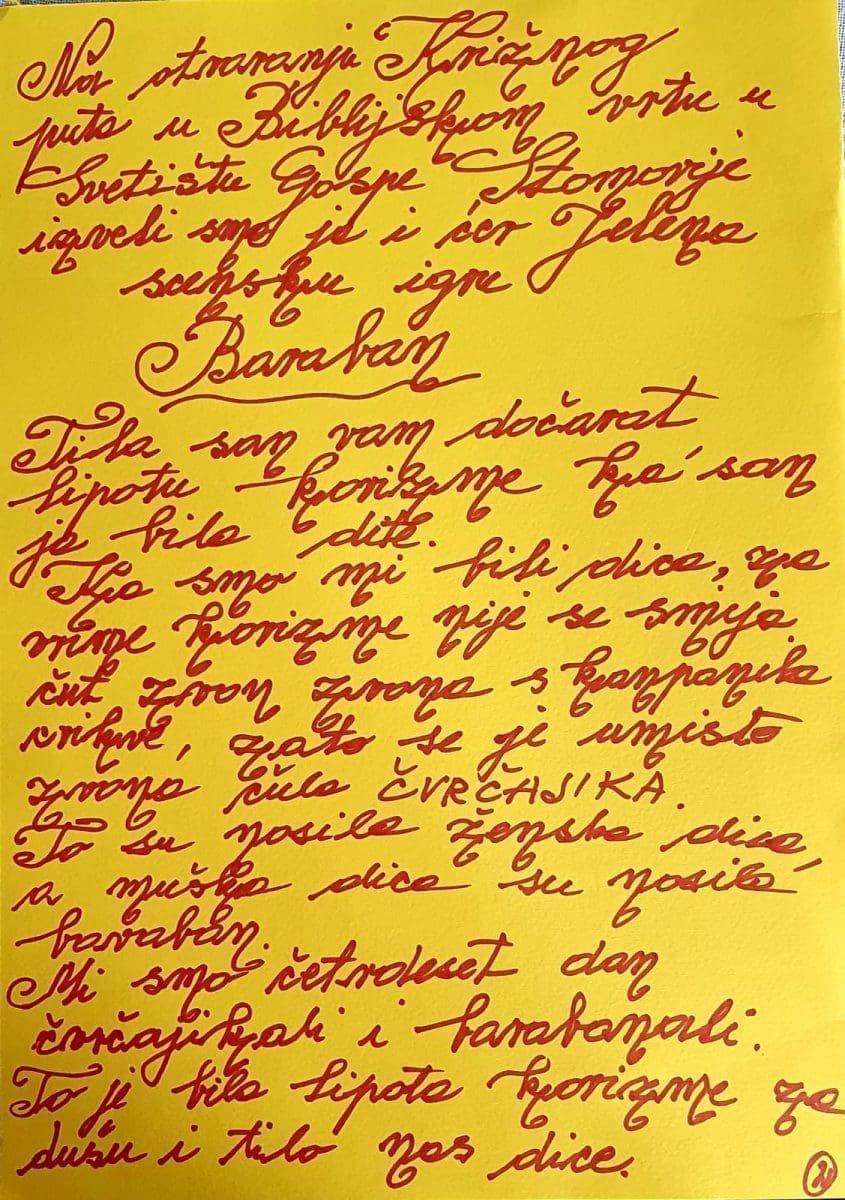 Na otvaranju Križnog
puta u Biblijskom vrtu u
Svetištu Gospe Stomorije
izveli smo ja i ćer Jelena
scensku igru
Baraban
Tila san vam dočarat
lipotu korizme ka' san
ja bila dite.
Ka smo mi bili dica, za
vrime korizme nije se smija
čut zvon zvona s kanpanila
crikve, zato se je umisto
zvona čula ČVRČAJIKA.
To su nosila ženska dica,
a muška dica su nosila
baraban.
Mi smo četrdeset dan
čvrčajikali i barabanali.
To je bila lipota korizme za
dušu i tilo nas dice.